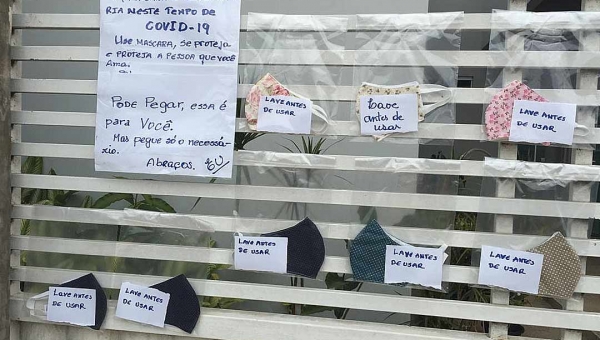 RIA NESTE TEMPO DE
COVID-19
USE MASCARA, SE PROTEJA
E PROTEJA A PESSOA QUE VOCÊ
AMA.
PODE PEGAR, ESSA É
PARA VOCÊ.
MAS PEGUE SÓ O NECESSÁ-
RIO.
ABRAÇOS.
LAVE ANTES
DE USAR
Lave
antes de
usar
LAVE ANTES
DE USAR
LAVE ANTES
DE USAR
LAVE ANTES
DE USAR
LAVE ANTES
DE USAR
LAVE ANTES
DE USAR
LAVE ANTES
DE USAR